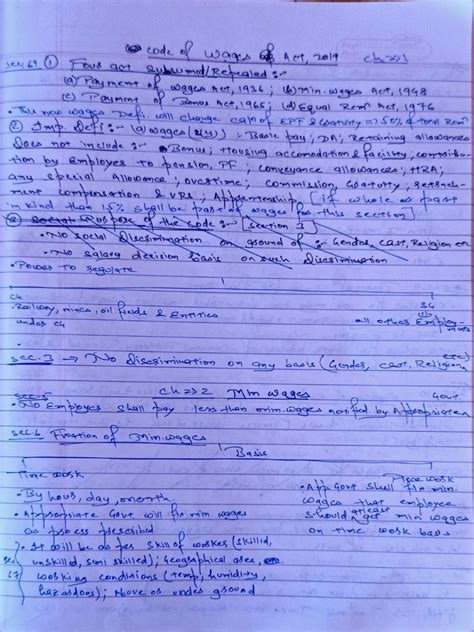 Code of Wages Act, 2019 Ch⇒1
Sec. 69 ① Four act Subsumed/Repealed :-
(a) Payment of wages Act, 1936 ; (b) Min. wages Act, 1948
(c) Payment of Bonus Act, 1965; (d) Equal Rem Act, 1976
• This new wages Defi. will change cal of EPF & Gratuity => 50% of total Rem
② Imp. Defi :- (a) wages : Basic pay, DA, Retaining allowances
Does not include :- Bonus; Housing accomodation & facility, contribu
tion by employer to pension, PF ; conveyance allowances; HRA;
any special Allowance; overtime; Commission, Gratuity, retrench
ment compensation & VRS; Apprenticeship [if whole or part
in kind than 15% shall be part of wages for this section]
③ Social Purpose of the Code :- [section 3]
• No social Discrimination on ground of :- Gender, cast, Religion etc
• No salary decision basis on such Discrimination
• Power to regulate
CG
SG
Railway, mines, oil fields & Entities
under CG
all other Employ-
ments
Sec. 3 → No Discrimination on any basis (Gender, cast, Religion etc)
Ch ⇒ 2 Min wages
Sec-5
• No Employer shall pay less than min. wages notified by Appropriate Govt.
Sec. 6 Fixation of Min. wages
Basis
Time work
• By hour, day, month.
• Appropriate Govt will fix min. wages
as process prescribed
• It will be as per skill of worker (skilled,
unskilled, semi skilled); Geographical area,
working conditions (temp, humidity,
hazardous); Above or under ground
• App Govt shall fix min.
wages that employee
should atleast get min wages
on time work basis